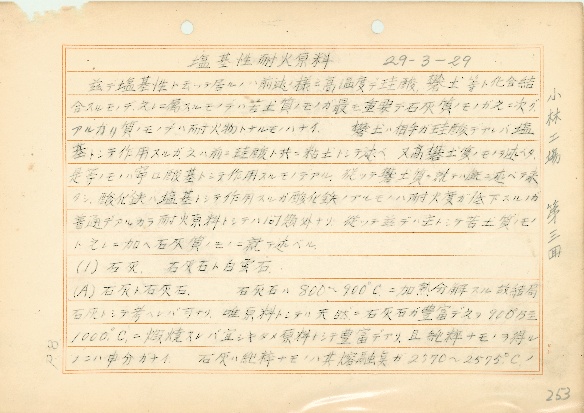 塩基性耐火原料 29-3-29
茲デ塩基性ト云ッテ居ルノハ前述ノ様ニ高温度デ珪酸、礬土等ト化合結
合スルモノデ之ニ属スルモノデハ苦土質ノモノガ最モ重要デ石灰質ノモノガ之ニ次グ
アルカリ質ノモノデハ耐火物トナルモノハナイ. 礬土ハ相手ガ珪酸デアレバ塩
基トシテ作用スルガ之ハ前ニ珪酸ト共ニ粘土トシテ述ベ 又高礬土質ノモノヲ述ベタ
是等ノモノハ
酸化鉄ハ塩基トシテ作用スルガ酸化鉄ノアルモノハ耐火度ガ低下スルガ
普通デアルカラ耐火原料トシテハ問題外ナリ 従ッテ茲デハ主トシテ苦土質ノモノ
トセニ加ヘ石灰質ノモノニ就テ述ベル.
(1) 石灰. 石灰石ト白雲石.
(A) 石灰ト石灰石. 石灰石ハ 800〜900℃ニ加熱分解スル故結局
石灰トシテ考ヘレバ可ナリ. 唯原料トシテハ天然ニ石灰石ガ豊富デ之ヲ900乃至
1000℃ニ煆焼スレバ宜シキタメ原料トシテ豊富デアリ且純粋ナモノヲ得ル
ノニハ申分ガナイ 石灰ハ純粋ナモノハ其熔融点ガ2570〜2575℃ノ
小林工場 第三回
253